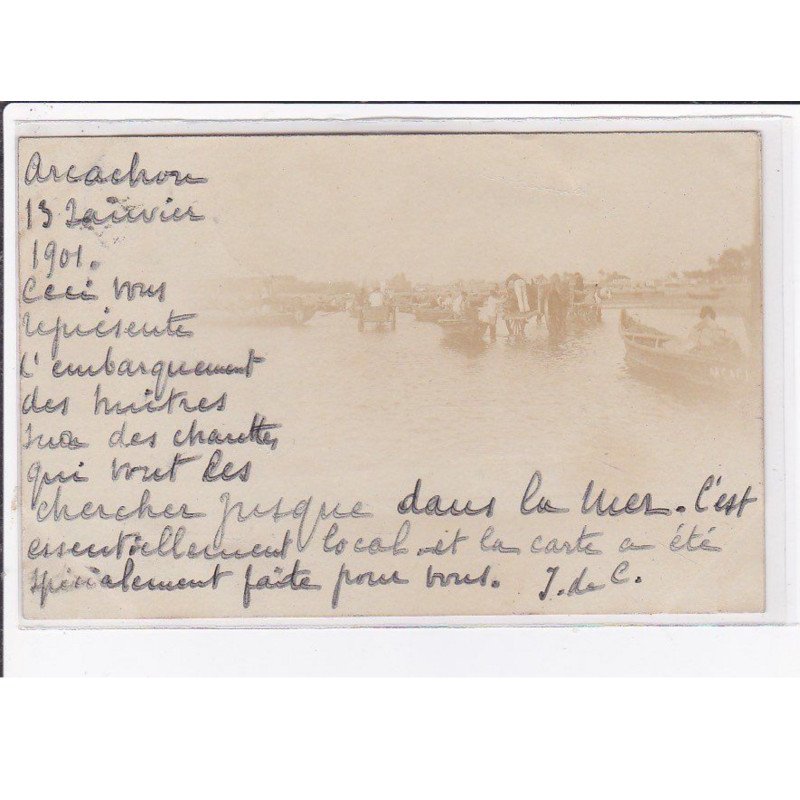 Arcachon
13 Janvier
1901.
Ceci vous
représente
l'embarquement
des huîtres
sur des charettes
qui vont les
chercher jusque dans la mer. c'est
essentiellement local. et la carte a été
spécialement faite pour vous. J. de C.